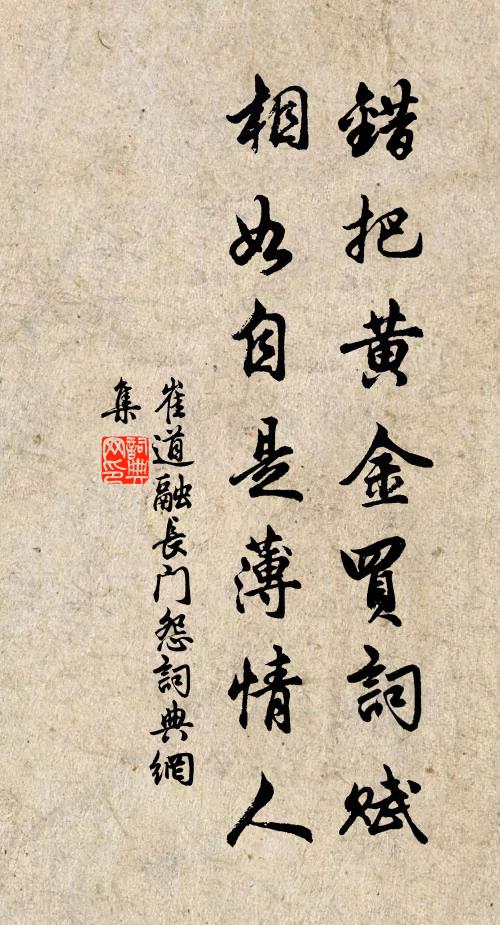 錯把黃金買詞賦
相如自是薄情人
崔道融長門怨詞典網
集
詞典
网印